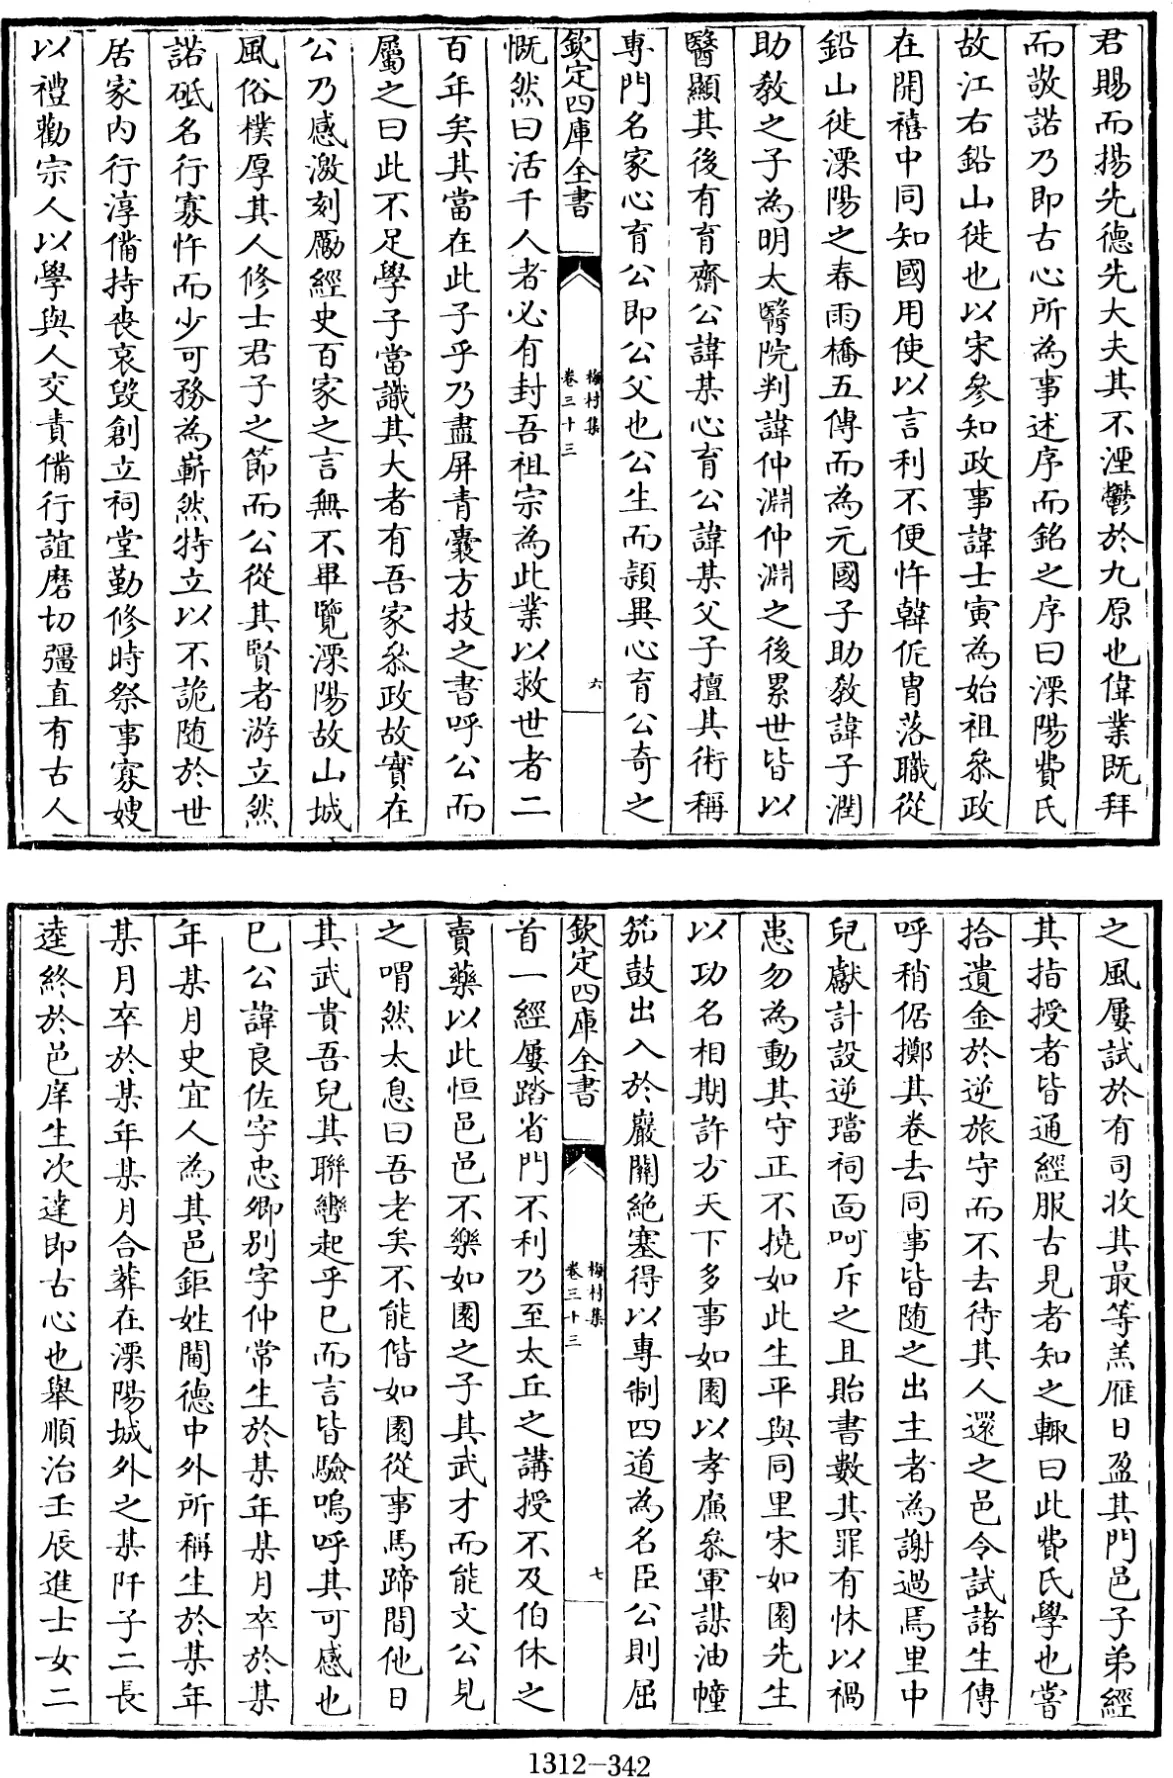 君賜而揚先德先大夫其不湮鬱於九原也偉業既拜
而敬諾乃即古心所為事述序而銘之序曰溧陽費氏
故江右鉛山徙也以宋參知政事諱士寅為始祖叅政
在開禧中同知國用使以言利不便忤韓侂胄落職從
鉛山徙溧陽之春雨橋五傳而為元國子助敎諱子潤
助敎之子為明太醫院判諱仲淵仲淵之後累世皆以
醫顯其後有育齋公諱某心育公諱某父子擅其術稱
專門名家心育公即公父也公生而頴異心育公奇之
欽定四庫全書
梅村集
卷三十三
六
慨然曰活千人者必有封吾祖宗為此業以救世者二
百年矣其當在此子乎乃盡屏青囊方技之書呼公而
屬之曰此不足學子當識其大者有吾家叅政故實在
公乃感激刻勵經史百家之言無不畢覽溧陽故山城
風俗樸厚其人修士君子之節而公從其賢者游立然
諾砥名行寡忤而少可務為嶄然特立以不詭随於世
居家内行淳備持喪哀毀創立祠堂勤修時祭事寡嫂
以禮勸宗人以學與人交責備行誼磨切彊直有古人
之風屢試於有司收其最等羔雁日盈其門邑子弟經
其指授者皆通經服古見者知之輙曰此費氏學也嘗
拾遺金於逆旅守而不去待其人還之邑令試諸生傳
呼稍倨擲其卷去同事皆随之出主者為謝過焉里中
兒獻計設逆璫祠面呵斥之且貽書數其罪有怵以禍
患勿為動其守正不撓如此生平與同里宋如園先生
以功名相期許方天下多事如園以孝廉叅軍謀油幢
笳鼓出入於巖關絶塞得以專制四道為名臣公則屈
欽定四庫全書
梅村集
卷三十三
七
首一經屢踏省門不利乃至太丘之講授不及伯休之
賣藥以此恒邑邑不樂如園之子其武才而能文公見
之喟然太息曰吾老矣不能偕如園從事馬蹄間他日
其武貴吾兒其聯轡起乎已而言皆驗嗚呼其可感也
已公諱良佐字忠卿别字仲常生於某年某月卒於某
年某月史宜人為其邑鉅姓閫德中外所稱生於某年
某月卒於某年某月合葬在溧陽城外之某阡子二長
逵終於邑庠生次達即古心也舉順治壬辰進士女二
1312—342